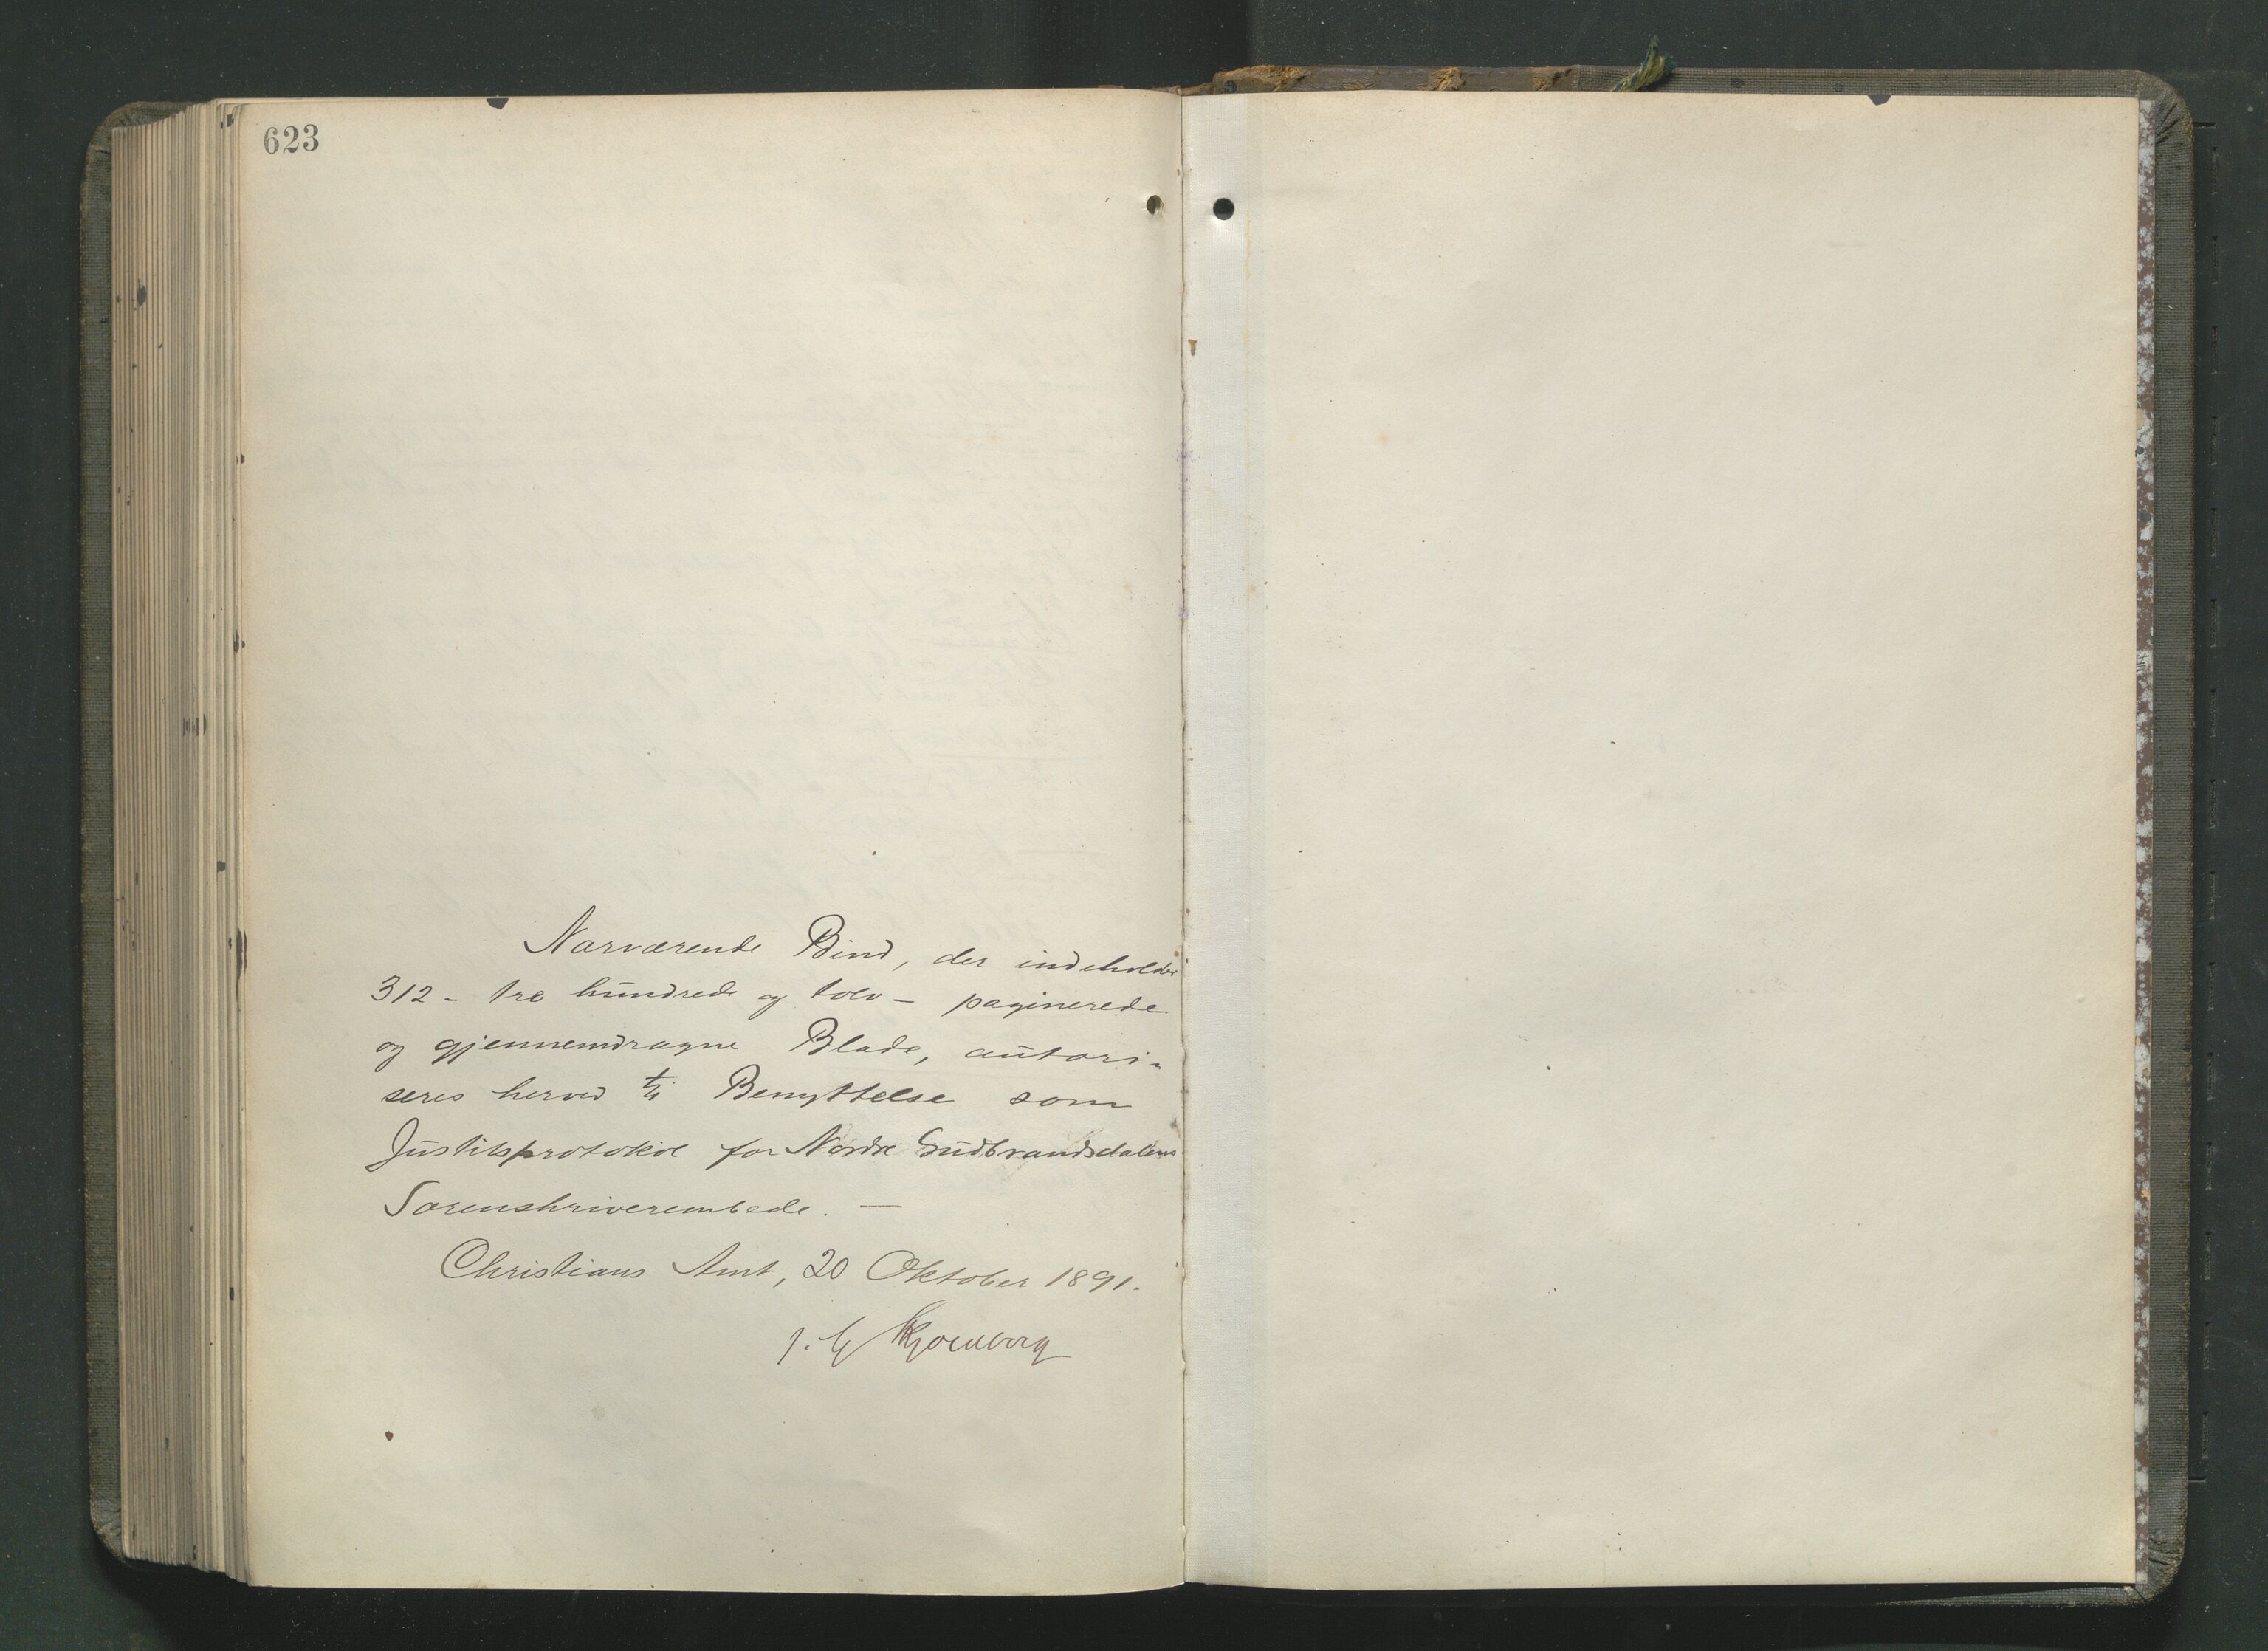 623
Nærværende Bind, der indeholder
312 - tre hundrede og tolv - paginerede
og gjennemdragne Blade, autori-
seres herved til Benyttelse som
Justitsprotokol for Nordre Gudbrandsdalens
Sorenskriverembede. —
Christians Amt, 20 Oktober 1891.